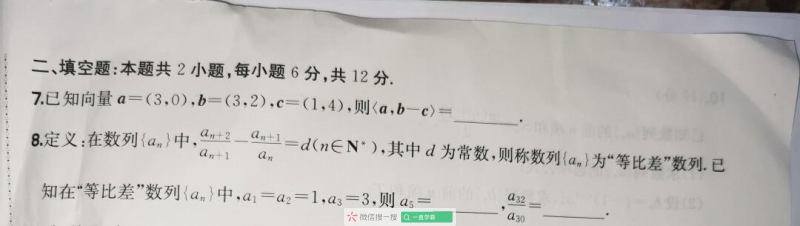 二、填空题:本题共 2 小题,每小题 6 分,共 12 分.
7.已知向量 a=(3,0),b=(3,2),c=(1,4),则⟨a,b−c⟩=________.
8.定义:在数列{aₙ}中,aₙ₊₂/aₙ₊₁−aₙ₊₁/aₙ=d(n∈N*),其中 d 为常数,则称数列{aₙ}为“等比差”数列.已
知在“等比差”数列{aₙ}中,a₁=a₂=1,a₃=3,则 a₅=________,a₃₂/a₃₀=________.
微信搜一搜